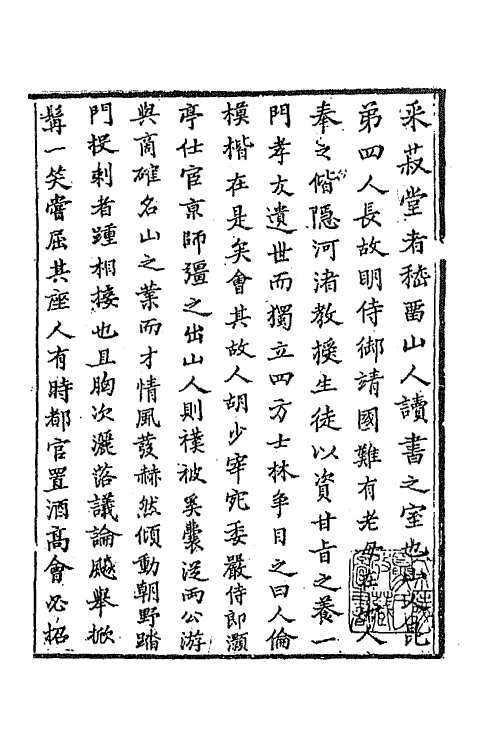 采菽堂者嵇畱山人讀書之室也山人昆
弟四人長故明侍御靖國難有老母在山人
奉之偕隱河渚教授生徒以資甘旨之養一
門孝友遺世而獨立四方士林争目之曰人倫
模楷在是矣會其故人胡少宰宛委嚴侍郎灝
亭仕官京師彊之出山人則襆被奚囊從兩公游
與商確名山之業而才情風發赫然傾動朝野踏
門投刺者踵相接也且胸次灑落議論飈舉掀
髯一笑嘗屈其座人有時都官置酒高會必招